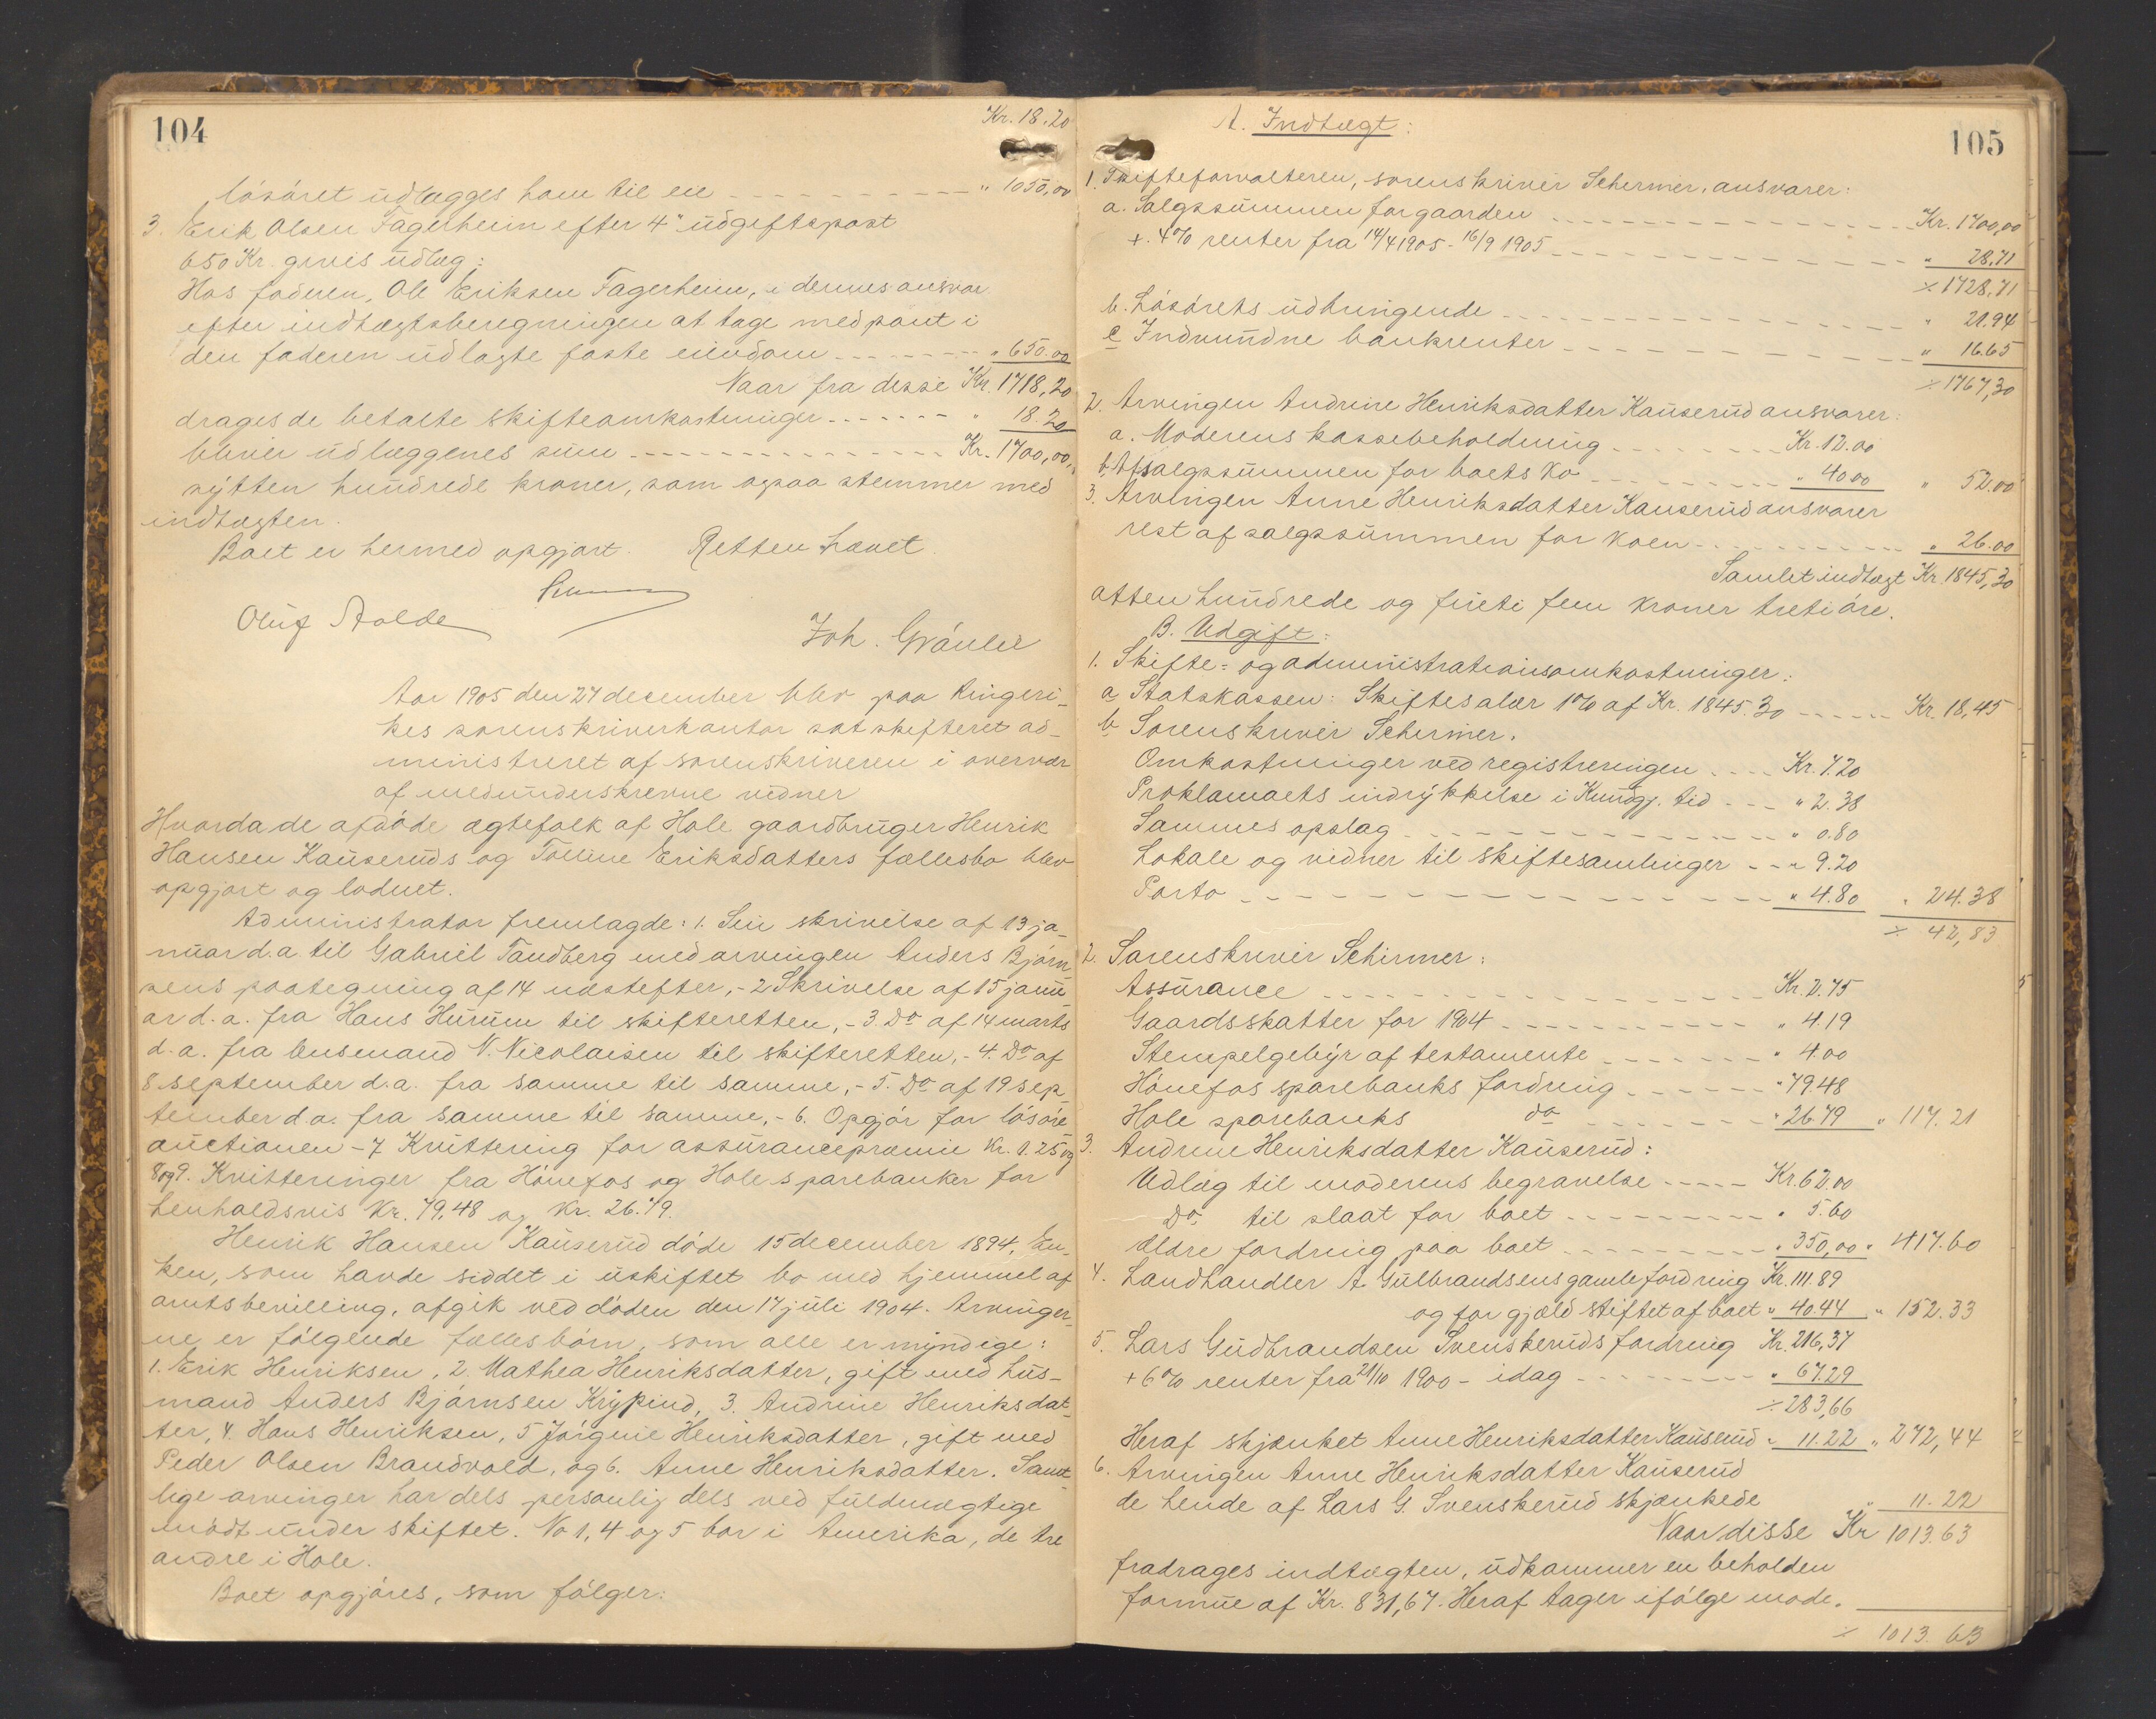 104
Kr. 18.20
løsøret udlægges ham til eie " 1050,00
3. Erik Olsen Fagerheim efter 4" udgiftspost
650 Kr. gives udlæg:
Hos faderen, Ole Eriksen Fagerheim, i dennes ansvar
efter indtægtsberegningen at tage med pant i
den faderen udlagte faste eiendom " 650.00
Naar fra disse Kr. 1718,20
drages de betalte skifteomkostninger " 18.20
bliver udlæggenes sum Kr. 1700,00,
sytten hundrede kroner, som ogsaa stemmer med
indtægten.
Boet er hermed opgjort. Retten hævet.
Oluf Stolde
Joh. Gränler
Aar 1905 den 27 december blev paa Ringeri-
kes sorenskriverkontor sat skifteret ad-
ministreret af sorenskriveren i overvær
af medunderskrevne vidner
Hvorda de afdøde ægtefolk af Hole gaardbruger Henrik
Hansen Kauseruds og Tolline Eriksdatters fællesbo blev
opgjort og loduet.
Administrator fremlagde: 1. Sin skrivelse af 13 ja-
nuar d.a. til Gabriel Tandberg med arvingen Anders Bjørn-
sens paategning af 14 næstefter, - 2 Skrivelse af 15 janu-
ar d.a. fra Hans Hurum til skifteretten, - 3 Do af 14 marts
d.a. fra lensmand N. Nicolaisen til skifteretten, - 4. Do af
8 september d.a. fra samme til samme, - 5. Do af 19 sep-
tember d.a. fra samme til samme, - 6. Opgjør for løsøre-
auctionen - 7 Kvittering for assurancepræmie Kr. 1.25 og
8 og 9. Kvitteringer fra Hønefos og Hole sparebanker for
henholdsvis Kr. 79,48 og Kr. 26.79.
Henrik Hansen Kauserud døde 15 december 1894. En-
ken, som havde siddet i uskiftet bo med hjemmel af
amtsbevilling, afgik ved døden den 17 juli 1904. Arvinger-
ne er følgende fællesbørn, som alle er myndige:
1. Erik Henriksen, 2. Mathea Henriksdatter, gift med hus-
mand Anders Bjørnsen Krypind, 3. Andrine Henriksdat-
ter, 4. Hans Henriksen, 5 Jørgine Henriksdatter, gift med
Peder Olsen Brandvold, og 6. Anne Henriksdatter. Samt-
lige arvinger har dels personlig dels ved fuldmægtige
mødt under skiftet. No 1, 4 og 5 bor i Amerika, de tre
andre i Hole.
Boet opgjøres, som følger:
105
A. Indtægt:
1. Skifteforvalteren, sorenskriver Schirmer, ansvarer:
a. Salgssummen for gaarden Kr. 1700,00
+ 4% renter fra 14/4 1905 - 16/9 1905 " 28,71
÷ 1728,71
b. Løsørets udbringende " 21.94
c Indvundne bankrenter " 16.65
÷ 1767,30
2. Arvingen Andrine Henriksdatter Kauserud ansvarer:
a. Moderens kassebeholdning Kr. 12.00
b. Af salgssummen for boets Ko " 40.00 " 52.00
3. Arvingen Anne Henriksdatter Kauserud ansvarer
rest af salgssummen for Koen " 26.00
Samlet indtægt Kr. 1845,30
atten hundrede og firti fem kroner tretiøre.
B. Udgift:
1. Skifte= og administrationsomkostninger:
a Statskassen: Skiftesalær 1% af Kr. 1845.30 Kr. 18,45
b Sorenskriver Schirmer.
Omkostninger ved registreringen Kr. 7.20
Proklamaets indrykkelse i Kundgj. tid " 2.38
Sammes opslag " 0.80
Lokale og vidner til skiftesamlinger " 9.20
Porto " 4.80 " 24.38
÷ 42,83
2. Sorenskriver Schirmer:
Assurance Kr. 2.75
Gaardsskatter for 1904 " 4.19
Stempelgebyr af testamente " 4.00
Hønefos sparebanks fordring " 79.48
Hole sparebanks do " 26.79 " 117.21
3. Andrine Henriksdatter Kauserud:
Udlæg til moderens begravelse Kr. 62.00
Do til slaat for boet " 5.60
Ældre fordring paa boet " 350,00 " 417.60
4. Landhandler A. Gulbrandsens gamle fordring Kr. 111.89
og for gjæld stiftet af boet " 40.44 " 152.33
5. Lars Gudbrandsen Svenskeruds fordring Kr. 216,37
+ 6% renter fra 21/10 1900 - idag " 67.29
÷ 283,66
Heraf skjænket Anne Henriksdatter Kauserud " 11.22 " 272,44
6. Arvingen Anne Henriksdatter Kauserud
de hende af Lars G. Svenskerud skjænkede " 11.22
Naar disse Kr 1013.63
fradrages indtægten, udkommer en beholden
formue af Kr. 831,67. Heraf tager ifølge mode-
÷ 1013.63